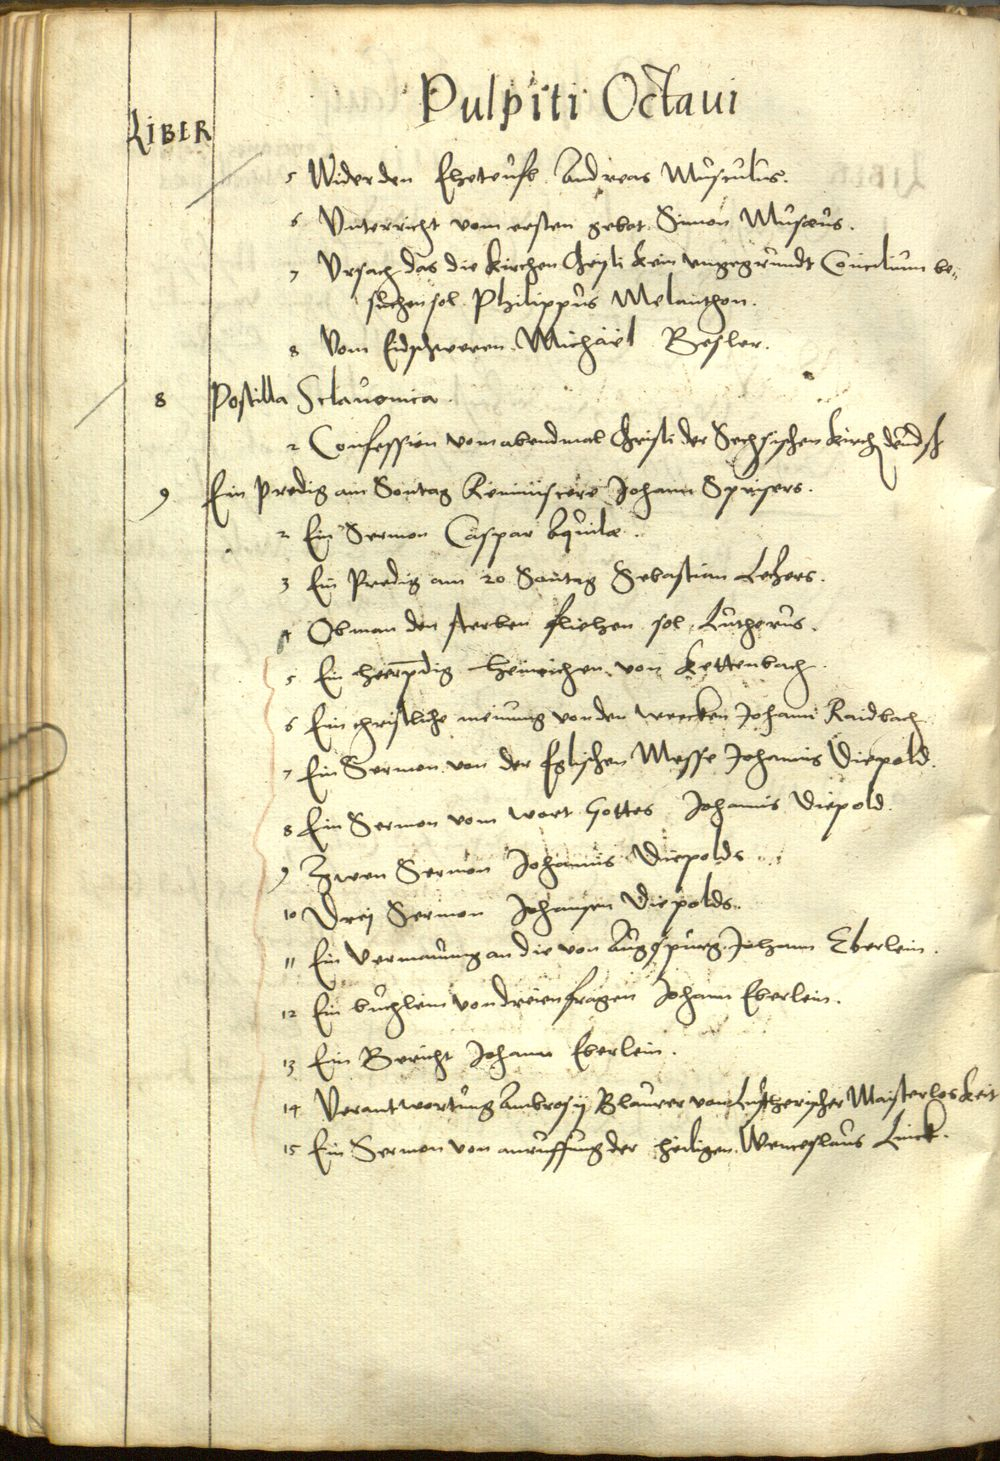 Pulpiti Octaui
LIBER
5 Wider den Eheteufl. Andreas Musculus.
6 Vnterricht vom ersten gebot. Simon Musæus.
7 Vrsach das die kirchen Christi kein Concilium be-
suchen sol. Philippus Melanthon.
8 Vom Eidschweren. Michäel Besler.
8 Postilla Sclauonica.
2 Confession vom abendmal Christi der Sechsischen kirch
9 Ein Predig am Sontag Reminiscere Johann
2 Ein Sermon Caspar Aquilæ.
3 Ein Predig am 20 Sontag Sebastian
4 Ob man den sterben fliehen sol. Lutherus.
5 Ein Heinrichen von Kettenbach.
6 Ein christliche meinung von den wercken Johann Raidbach
7 Ein Sermon von der Messe Johannis Diepold.
8 Ein Sermon vom wort Gottes Johannis Diepold.
9 Zwen Sermon Johannis Diepolds.
10 Drej Sermon Johansen Diepolds.
11 Ein Vermanung an die von Augspurg. Johann Eberlein.
12 Ein buchlein von dreien fragen Johann Eberlein.
13 Ein Bericht Johann Eberlein.
14 Verantwortung Ambrosij Blaurer von Lutherischer Maisterloskeit
15 Ein Sermon von anruffung der heiligen. Wenceslaus Linck.